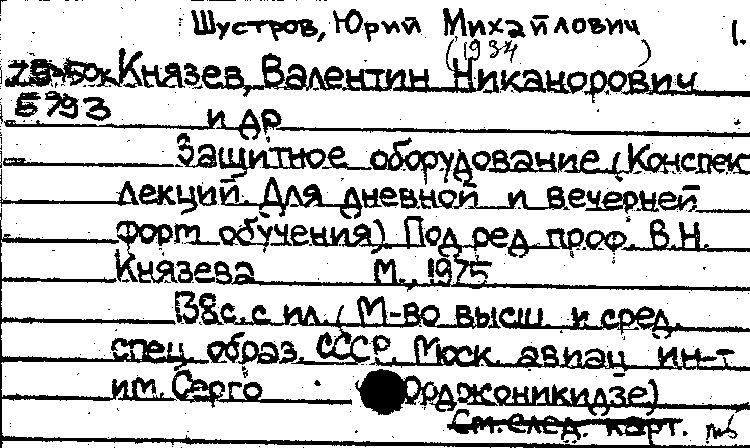 Шустров, Юрий Михайлович 1.
(1934 )
75-50к Князев, Валентин Никанорович
5793 и др
Защитное оборудование (Конспек
лекций. Для дневной и вечерней
форм обучения). Под ред проф. В.Н.
Князева М., 1975
138с. с ил. (М-во высш. и сред.
спец. образ. СССР. Моск. авиац ин-т
им. Серго Орджоникидзе)
См. след. карт.